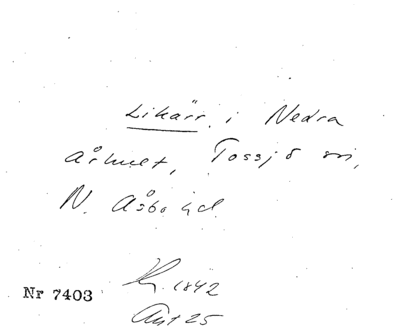 Likärr i Nedra
Århult, Tossjö sn,
N. Åsbo hd.
1842
Nr 7403
Akt 25